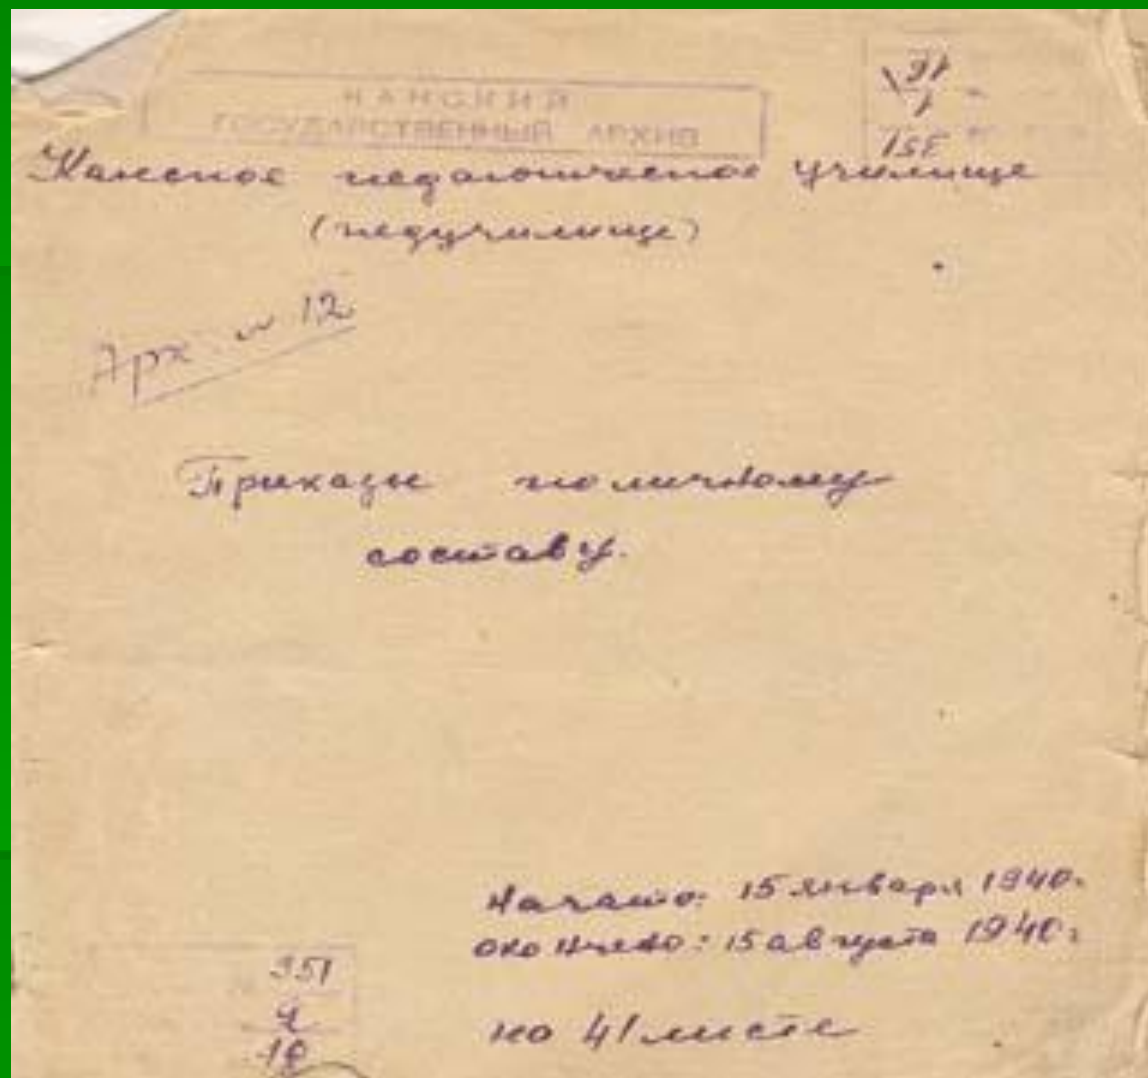 КАНСКИЙ
ГОСУДАРСТВЕННЫЙ АРХИВ
351
Канское педагогическое училище
(педучилище)
Арх. № 12
Приказы по личному
составу.
Начато: 15 января 1940г.
окончено: 15 августа 1940г.
на 41 листе
351